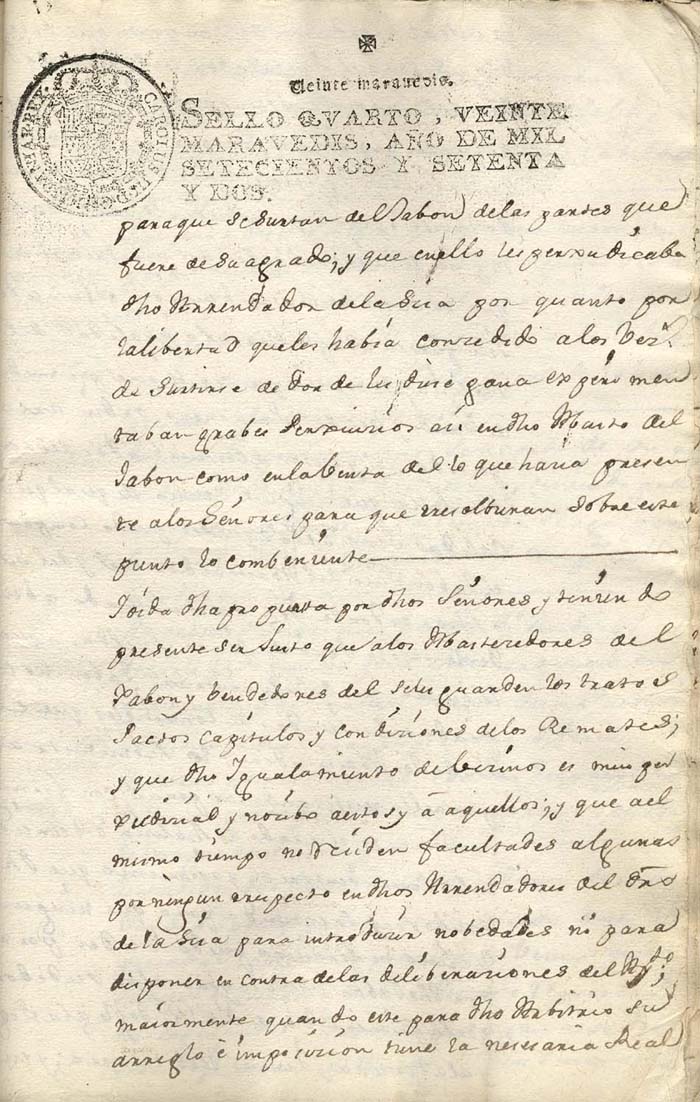 Veinte maravedis.
SELLO QVARTO, VEINTE
MARAVEDIS, AÑO DE MIL
SETECIENTOS Y SETENTA
Y DOS.
CAROLUS III D G HISPANIAR REX
para que se surtan del Jabon de las partes que
fuere de su agrado; y que en ello les perxudicaba
dho Arrendador de la Sisa por quanto por
la libertad que les había concedido a los Vezs.
de surtirse de donde les diese gana experimen
taban grabes perxuicios asi en dho Abasto del
Jabon como en la benta del lo que hacia presen
te a los Señores para que resolbieran sobre este
punto lo combeniente
Joida dha propuesta por dhos Señores y teniendo
presente ser Justo que a los Abastezedores del
Xabon y bendedores del se les guarden los tratos
Pactos capitulos y condiciones de los Remates;
y que dho Igualamiento de becinos es mui per
xudicial y nocibo a estos y a aquellos; y que a el
mismo tiempo no residen facultades algunas
por ningun respecto en dhos Arrendadores del dro
de la Sisa para introducir nobedades ni para
disponer en contra de las deliberaciones del Aydo;
maiormente quando este para dho Arbitrio su
arreglo e imposicion tiene la nesesaria Real